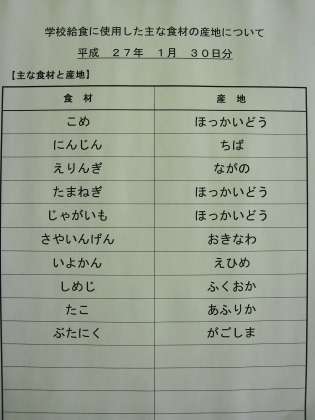 学校給食に使用した主な食材の産地について
平成　２７年　１月　３０日分
【主な食材と産地】
食　材　産　地
こめ　ほっかいどう
にんじん　ちば
えりんぎ　ながの
たまねぎ　ほっかいどう
じゃがいも　ほっかいどう
さやいんげん　おきなわ
いよかん　えひめ
しめじ　ふくおか
たこ　あふりか
ぶたにく　がごしま